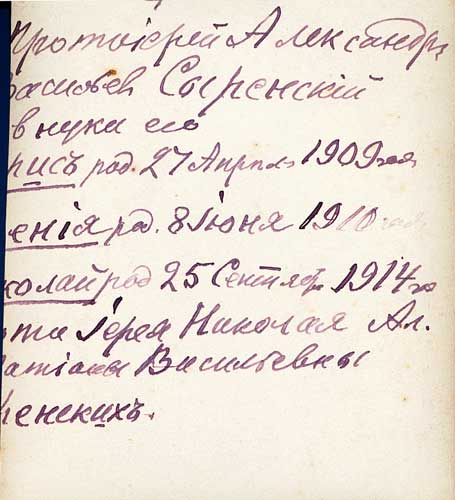 Протоіерей Александръ
Васильев Сыренскій
внуки его
рисъ род. 27 Апрѣля 1909 года
енія род. 8 Іюня 1910 года
колай род 25 Сентяб. 1914 го
та Іерея Николая Ал.
Татіаны Васильевны
ренскихъ.